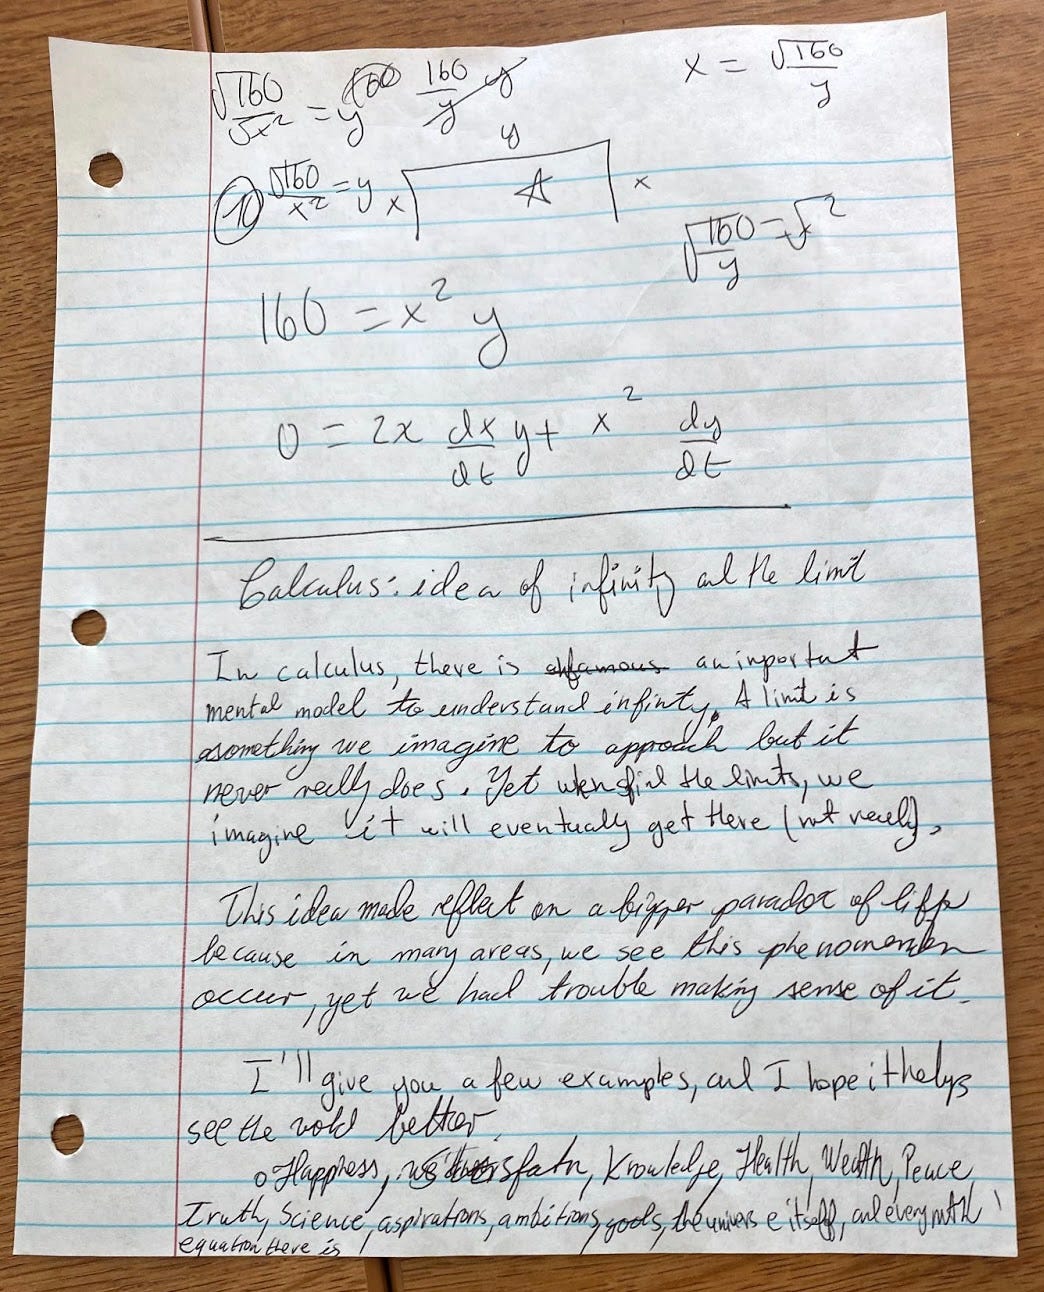 √160/√x² = y 160/y y x = √160/y
y
10 √160/x² = y x A x
√160/y = √x²
160 = x² y
0 = 2x dx/dt y + x² dy/dt
Calculus: idea of infinity and the limit
In calculus, there is an inportant
mental model to understand infinty. A limit is
asomething we imagine to approach but it
never really does. Yet when find the limits, we
imagine it will eventually get there (not really),
This idea made reflect on a bigger paradox of life
because in many areas, we see this phenomenon
occur, yet we had trouble making sense of it.
I'll give you a few examples, and I hope it helps
see the world better.
o Happness, Knowledge, Health, Wealth, Peace,
Truth, Science, aspirations, ambitions, goals, the universe itself, and every math
equation there is